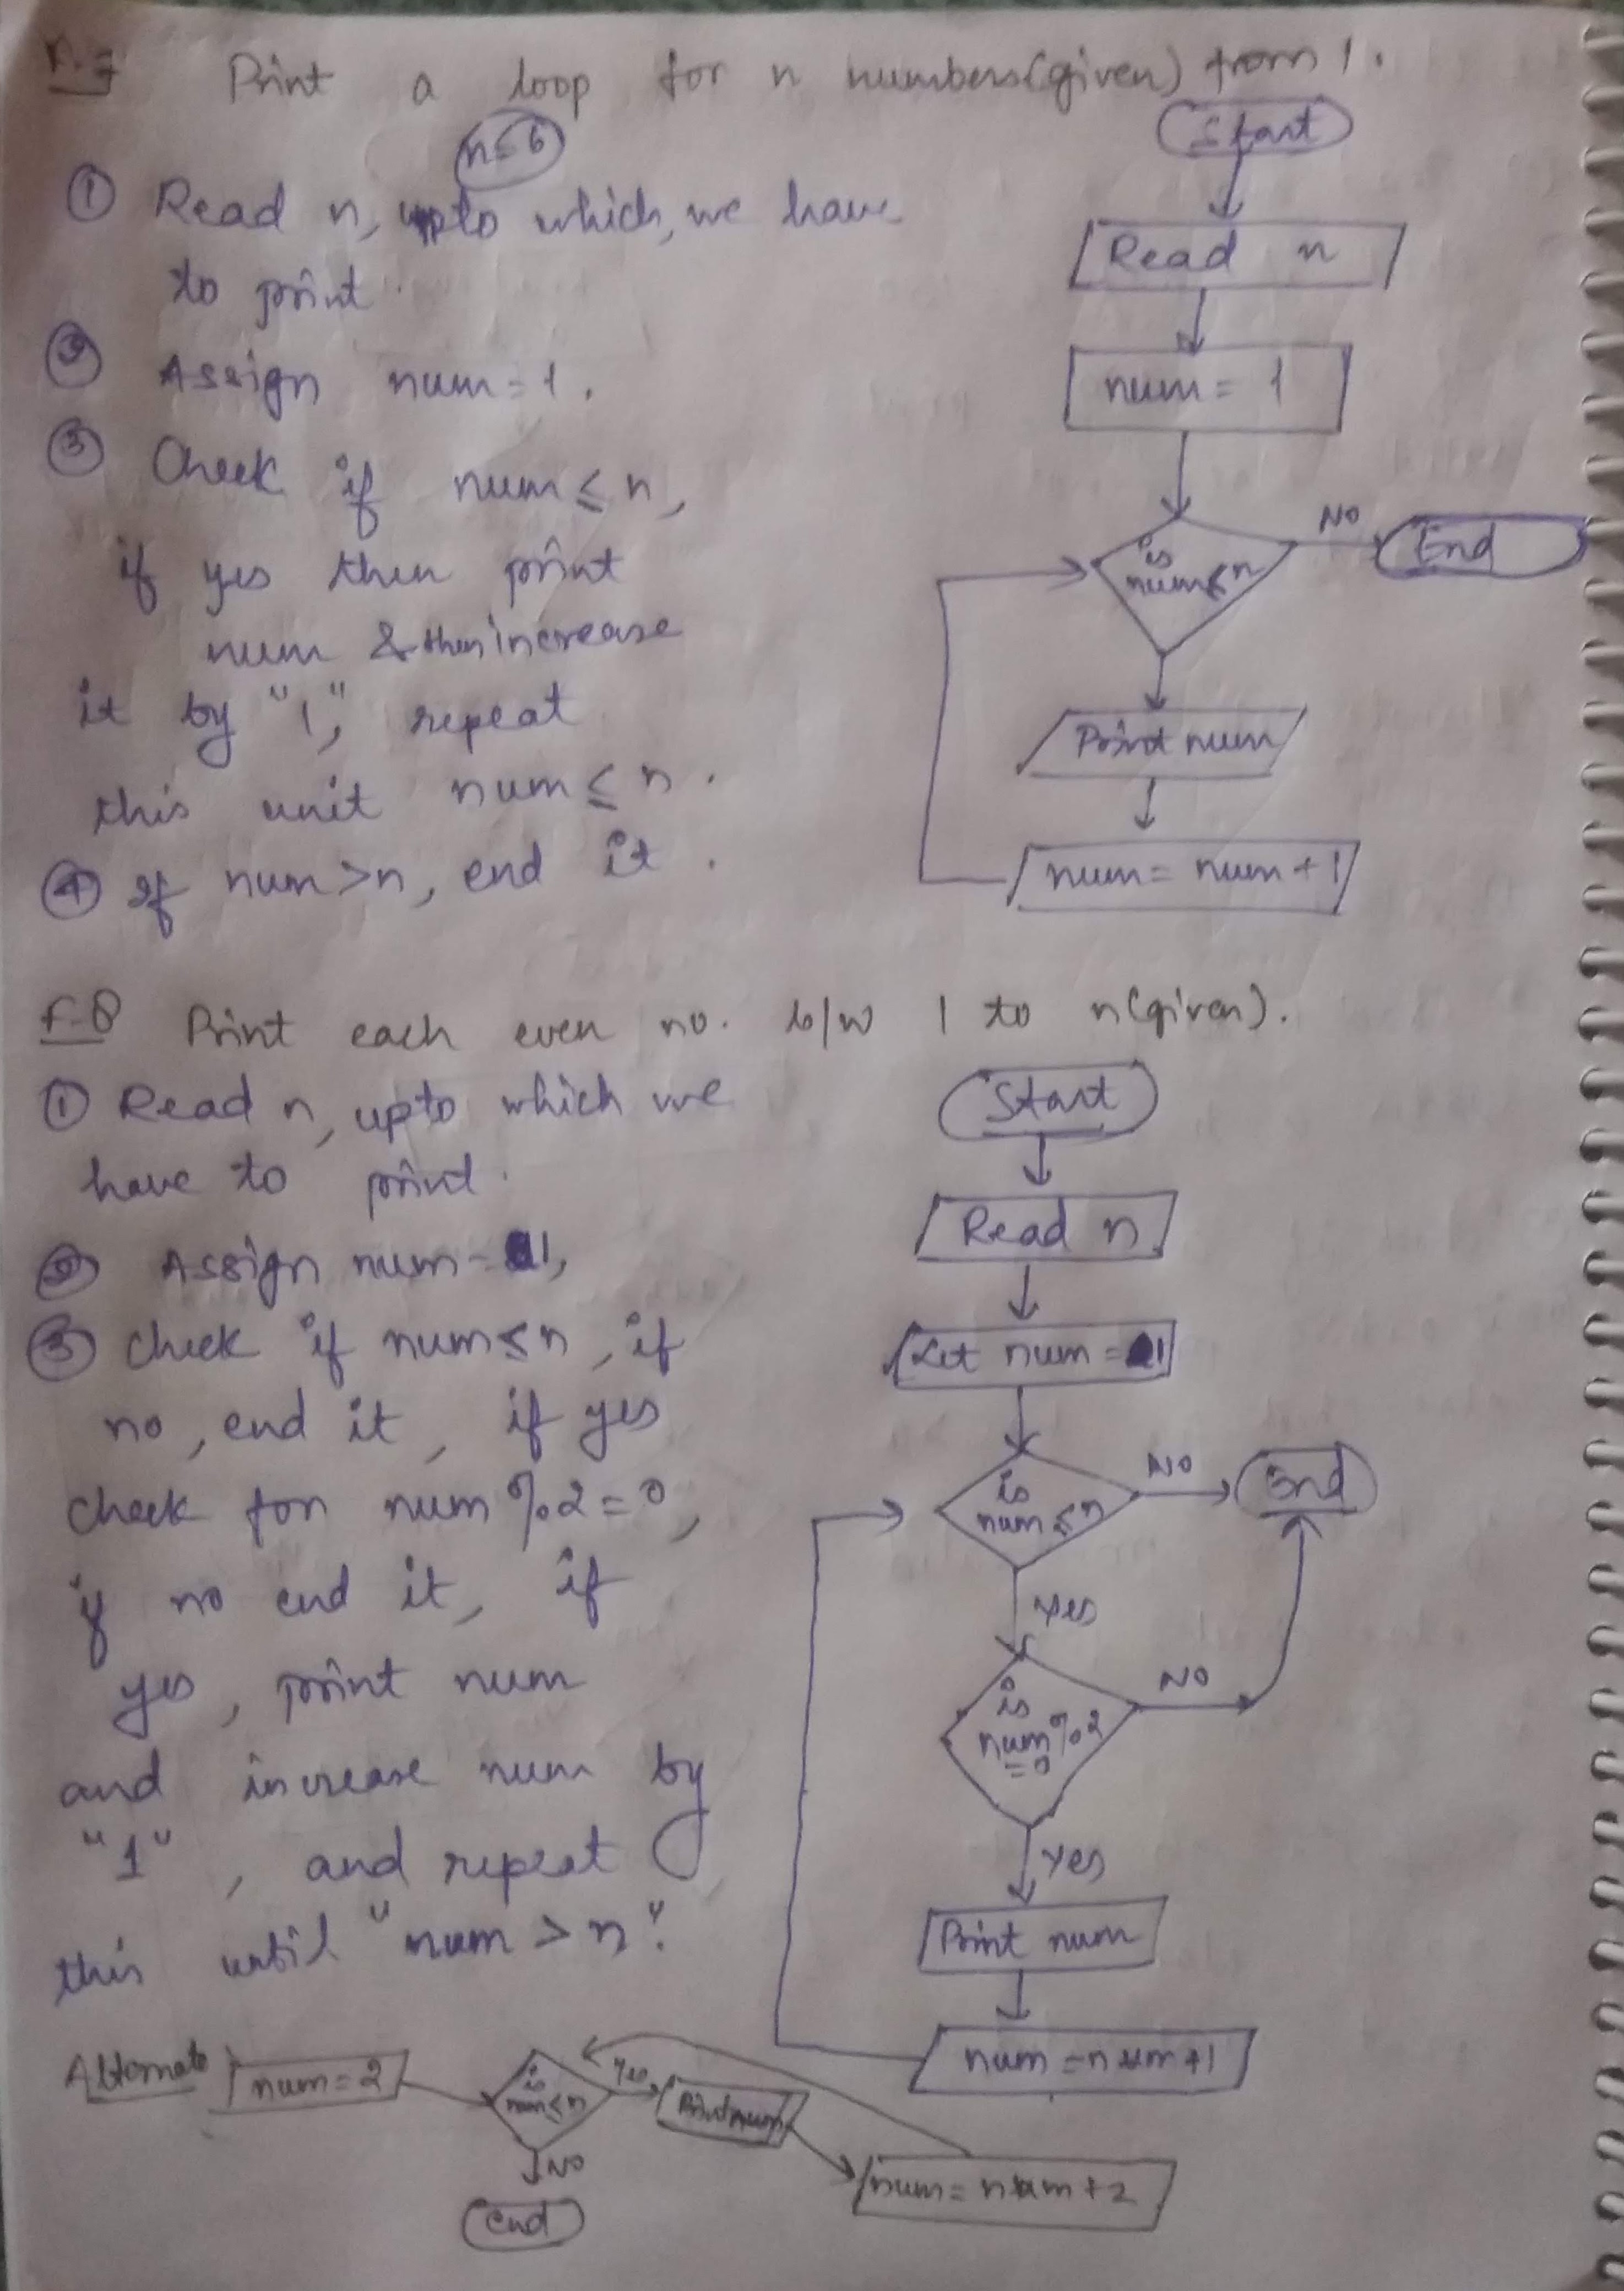 Print a loop for n numbers(given) from 1.
n=6
① Read n, upto which, we have
to print.
② Assign num=1.
③ Check if num ≤ n,
if yes then print
num & then increase
it by "1", repeat
this unit num ≤ n.
④ If num>n, end it.
Start
Read n
num = 1
is
num≤n
NO
End
Print num
num = num+1
F-8 Print each even no. b/w 1 to n(given).
① Read n, upto which we
have to print.
② Assign num=1,
③ check if num≤n, if
no, end it, if yes
check for num%2=0,
if no end it, if
yes, print num
and increase num by
"1", and repeat
this until "num > n".
Start
Read n
Let num = 1
is
num ≤ n
NO
End
Yes
is
num%2
=0
NO
Yes
Print num
num = num+1
Alternate
num=2
is
num≤n
Yes
Print num
NO
end
num = num+2